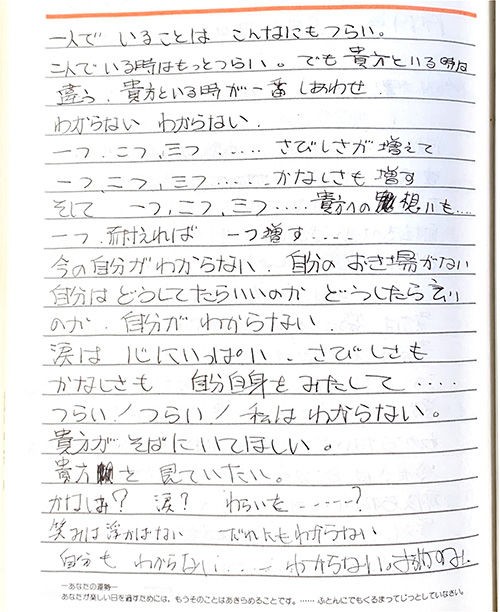 一人で いることは こんなにもつらい。
二人でいる時はもっとつらい。でも貴方といる時は
違う. 貴方といる時が一番しあわせ.
わからない わからない.
一つ、二つ、三つ ‥‥‥ さびしさが増えて
一つ、二つ、三つ ‥‥‥ かなしさも増す
そして 一つ、二つ、三つ‥‥‥貴方への想いも‥‥
一つ.耐えれば 一つ増す‥‥‥
今の自分がわからない. 自分のおき場がない
自分は どうしてたらいいのか どうしたら
のか. 自分が わからない.
涙は 心にいっぱい. さびしさも
かなしさも 自分自身を みたして ‥‥
つらい!つらい! 私は わからない。
貴方が そばに いてほしい。
貴方 と 見ていたい。
涙? わらいを ‥‥‥?
笑みは浮かばない だれにもわからない
自分も わからない‥‥ わからない.
―あなたの運勢―
あなたが楽しい日を過すためには、もうそのことはあきらめることです。‥‥‥ ふとんにでもくるまってじっとしていなさい。